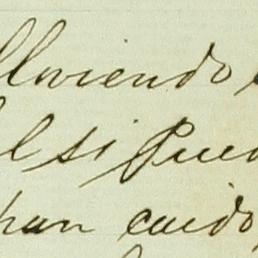 lloviendo
el si Pued
han caido